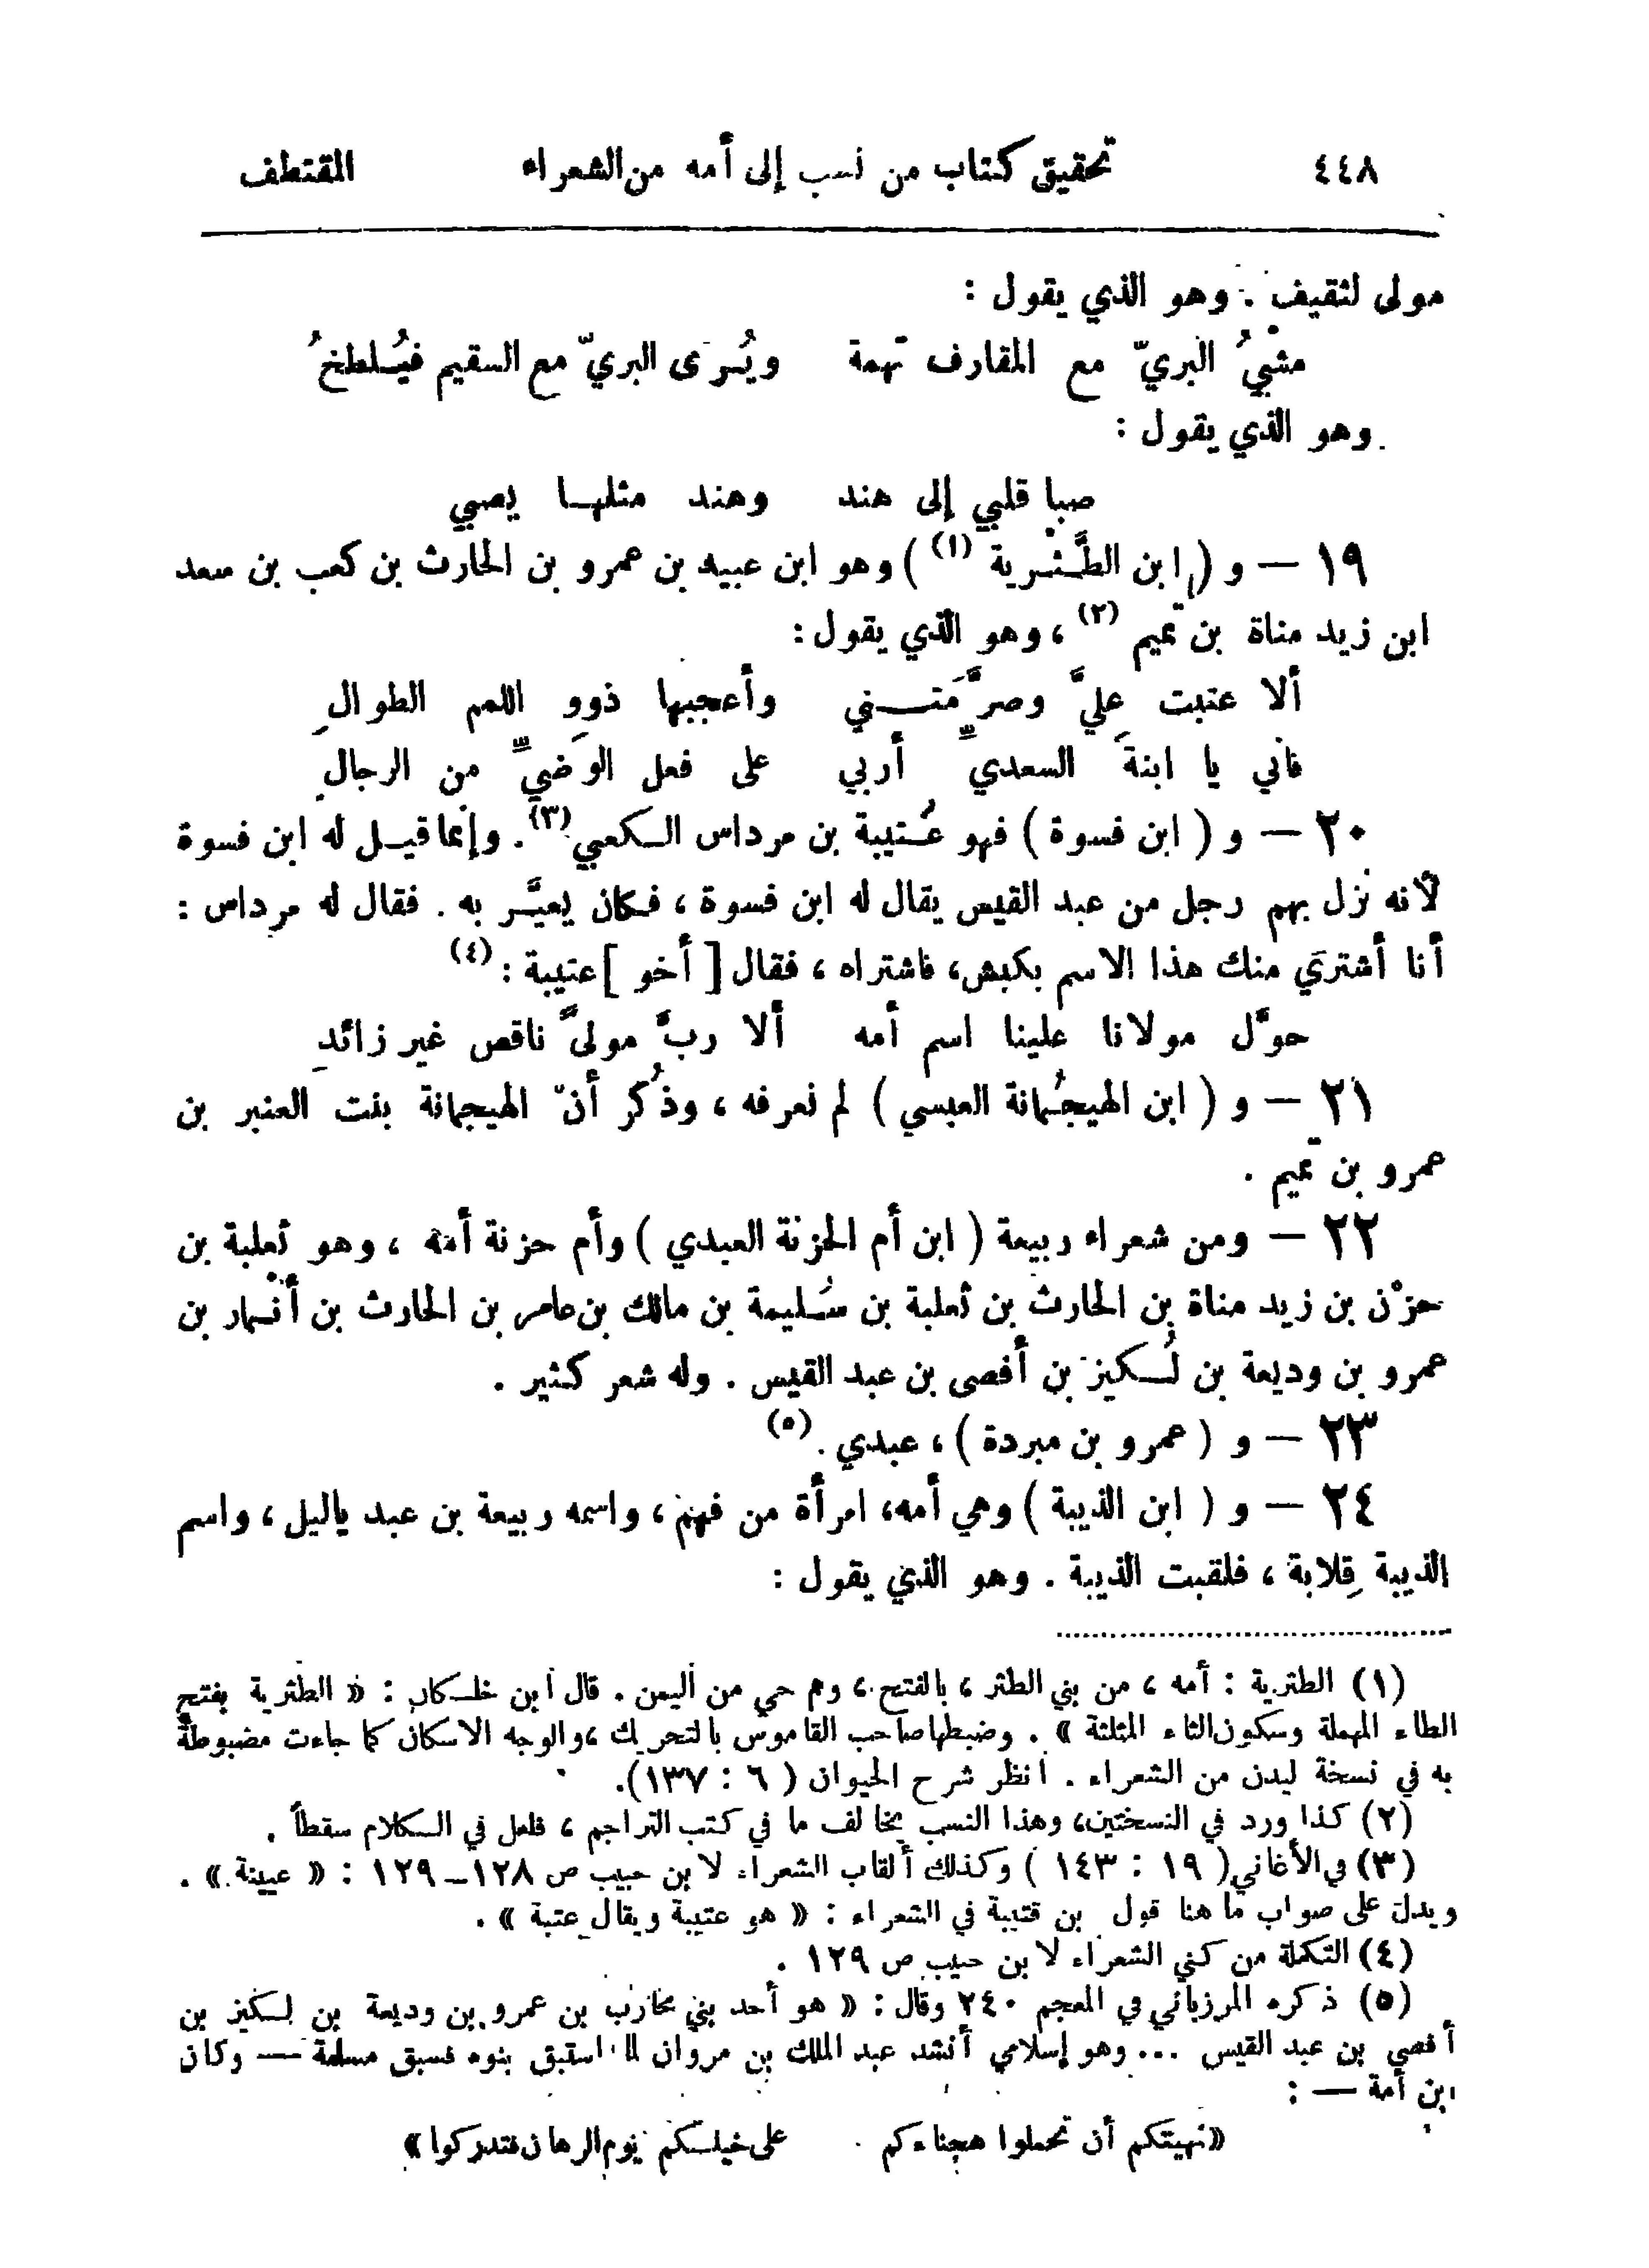 ٤٤٨ تحقيق كتاب من نسب إلى أمه من الشعراء المقتطف
مولى لثقيف . وهو الذي يقول :
مشْيُ البريّ مع المقارف تهمة ويُرى البريّ مع السقيم فيُلطخُ
وهو الذي يقول :
صبا قلبي إلى هند وهند مثلها يصبي
١٩ — و ( ابن الطَّثْرية (١) ) وهو ابن عبيد بن عمرو بن الحارث بن كعب بن سعد
ابن زيد مناة بن تميم (٢) ، وهو الذي يقول :
ألا عتبت عليَّ وصرَّمَتني وأعجبها ذوو اللمم الطوالِ
فاني يا ابنةَ السعديِّ أربي على فعل الوَضيِّ من الرجالِ
٢٠ — و ( ابن فسوة ) فهو عُتيبة بن مرداس الكعبي (٣) . وإنما قيل له ابن فسوة
لأنه نزل بهم رجل من عبد القيس يقال له ابن فسوة ، فكان يعيَّر به . فقال له مرداس :
أنا أشتري منك هذا الاسم بكبش، فاشتراه ، فقال [ أخو ] عتيبة : (٤)
حوَّل مولانا علينا اسم أمه ألا ربَّ مولىً ناقص غير زائدِ
٢١ — و ( ابن الهيجُمانة العبسي ) لم نعرفه ، وذُكر أنّ الهيجمانة بنت العنبر بن
عمرو بن تميم .
٢٢ — ومن شعراء ربيعة ( ابن أم الحزنة العبدي ) وأم حزنة أمه ، وهو ثعلبة بن
حزْن بن زيد مناة بن الحارث بن ثعلبة بن سُليمة بن مالك بن عامر بن الحارث بن أنْمار بن
عمرو بن وديعة بن لُكيز بن أفصى بن عبد القيس . وله شعر كثير .
٢٣ — و ( عمرو بن مبردة ) ، عبدي . (٥)
٢٤ — و ( ابن الذيبة ) وهي أمه، امرأة من فهم ، واسمه ربيعة بن عبد ياليل ، واسم
الذيبة قِلابة ، فلقبت الذيبة . وهو الذي يقول :
(١) الطثرية : أمه ، من بني الطثر ، بالفتح ، وهم حي من اليمن . قال ابن خلكان : « الطثرية بفتح
الطاء المهملة وسكون الثاء المثلثة » . وضبطها صاحب القاموس بالتحريك ، والوجه الاسكان كما جاءت مضبوطةً
به في نسخة ليدن من الشعراء . انظر شرح الحيوان ( ٦ : ١٣٧).
(٢) كذا ورد في النسختين، وهذا النسب يخالف ما في كتب التراجم ، فلعل في الكلام سقطاً .
(٣) في الأغاني ( ١٩ : ١٤٣ ) وكذلك ألقاب الشعراء لابن حبيب ص ١٢٨ــ١٢٩ : « عيينة » .
ويدل على صواب ما هنا قول بن قتيبة في الشعراء : « هو عتيبة ويقال عتبة » .
(٤) التكملة من كنى الشعراء لابن حبيب ص ١٢٩ .
(٥) ذكره المرزباني في المعجم ٢٤٠ وقال : « هو أحد بني محارب بن عمرو بن وديعة بن لكيز بن
أفصي بن عبد القيس ... وهو إسلامي أنشد عبد الملك بن مروان لما استبق بنوه فسبق مسلمة — وكان
ابن أمة — :
« نهيتكم أن تحملوا هجناءكم على خيلكم يوم الرهان فتدركوا »